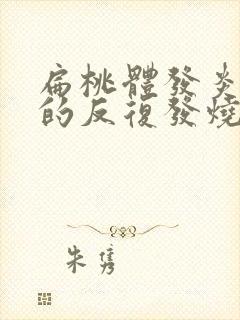 扁桃體發炎
的反復發燒
朱雋